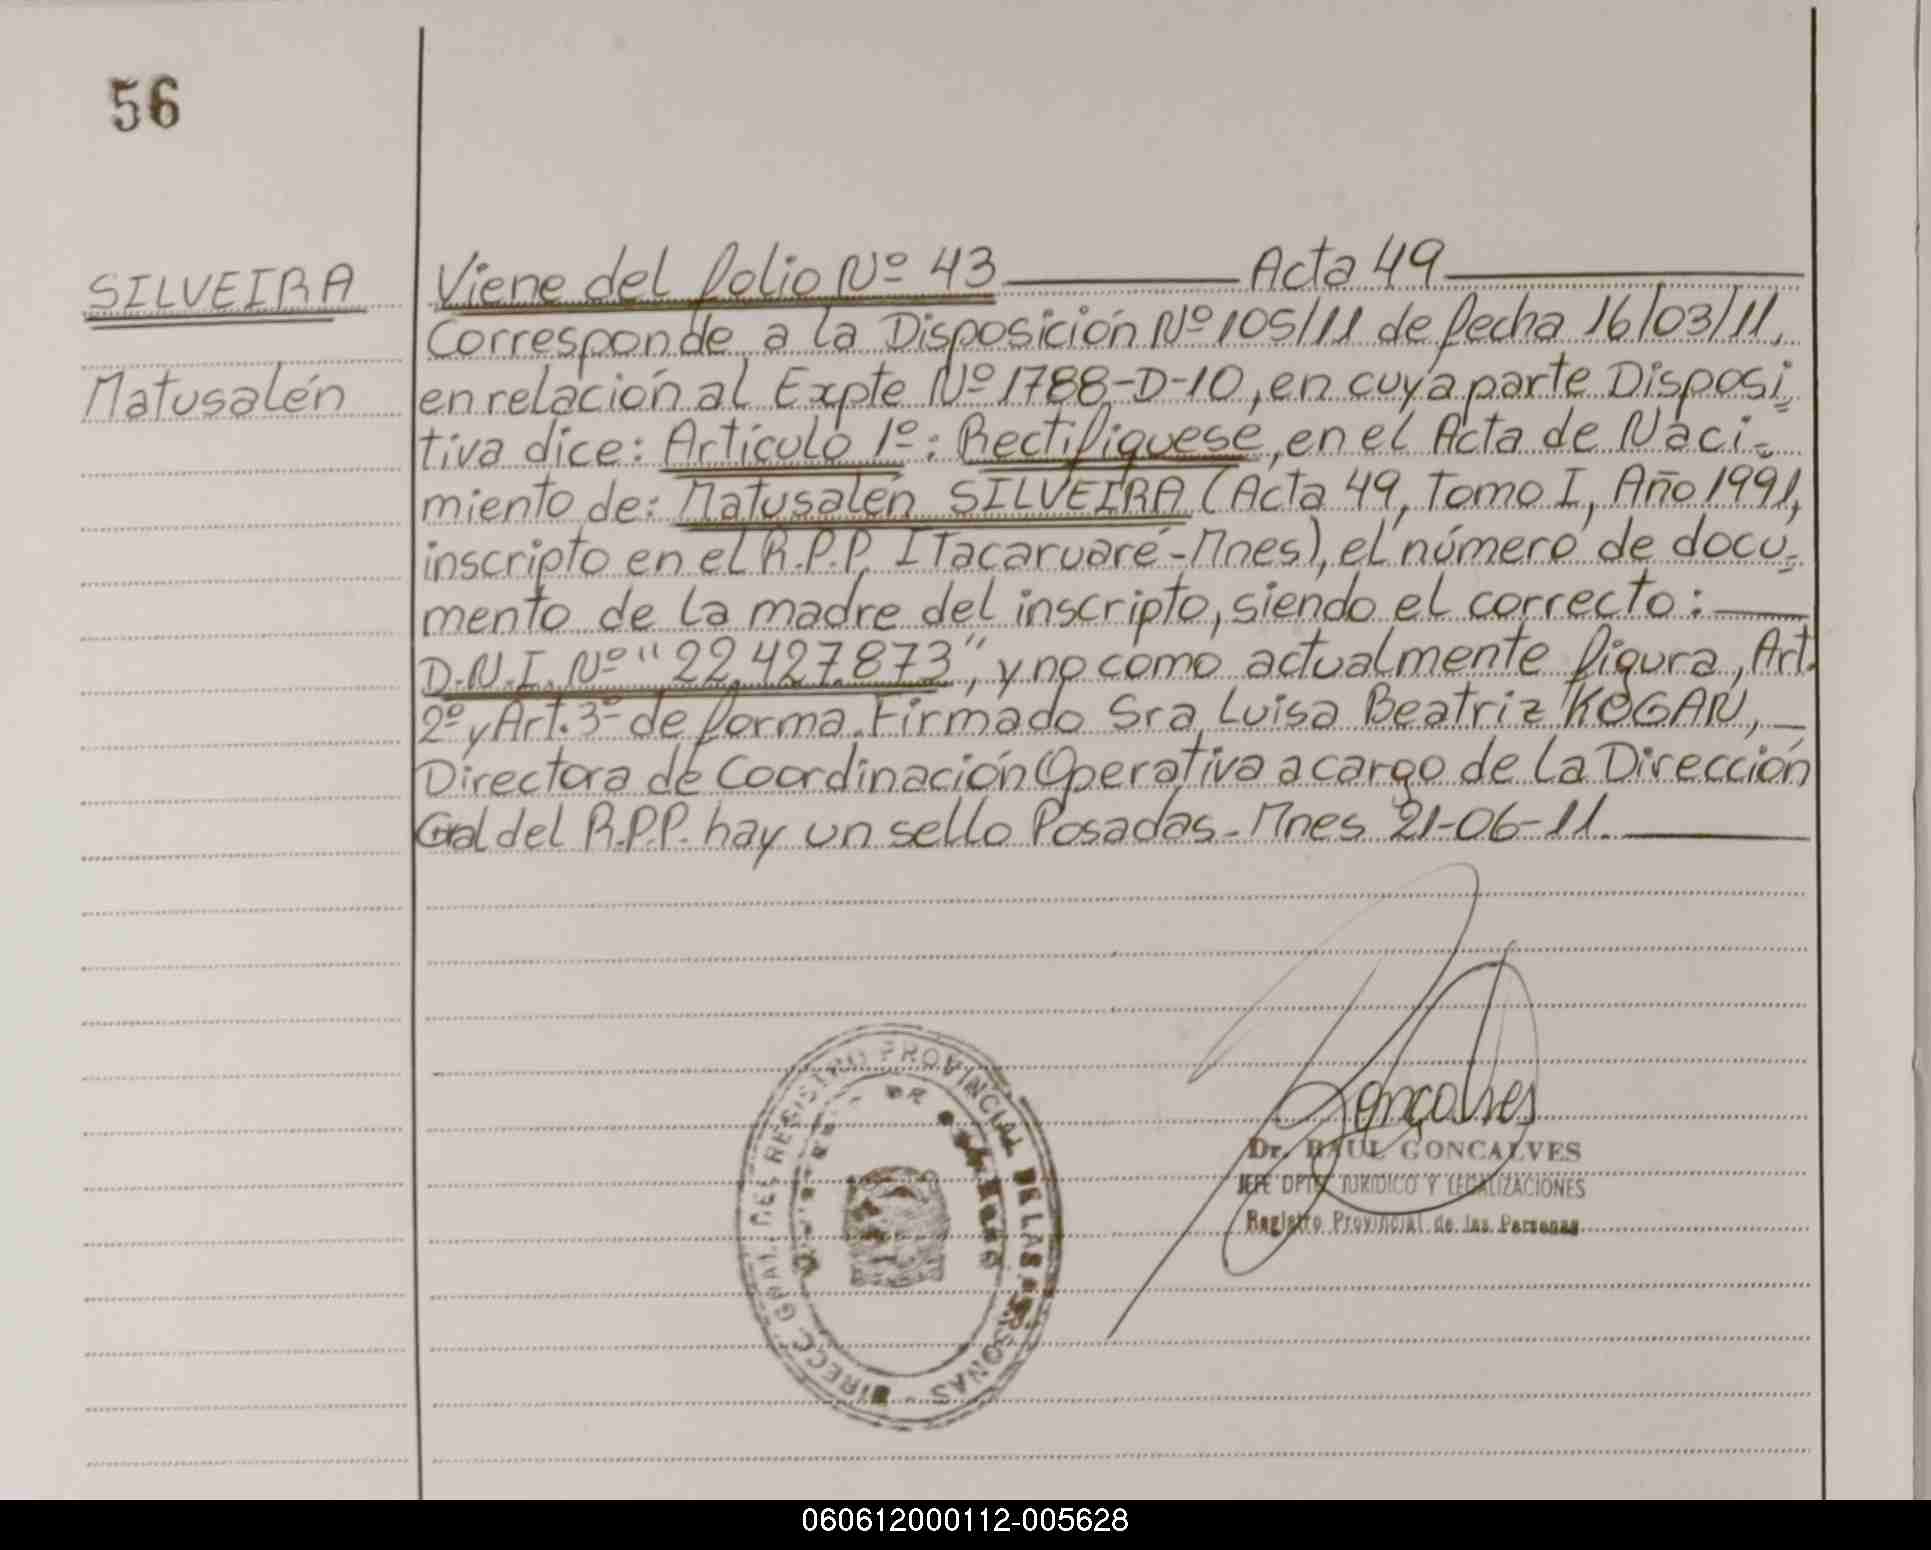 56
SILVEIRA
Matusalén
Viene del folio Nº 43 Acta 49
Corresponde a la Disposición Nº 105/11 de fecha 16/03/11,
en relación al Expte Nº 1788-D-10, en cuya parte Disposi=
tiva dice: Artículo 1º: Rectifiquese, en el Acta de Naci=
miento de: Matusalén SILVEIRA (Acta 49, Tomo I, Año 1991,
inscripto en el R.P.P. ITacaruaré-Mnes), el número de docu=
mento de la madre del inscripto, siendo el correcto:
D.N.I. Nº "22.427.873", y no como actualmente figura, Art.
2º y Art. 3º de forma. Firmado Sra Luisa Beatriz KOGAN,
Directora de Coordinación Operativa a cargo de la Dirección
Gral del R.P.P. hay un sello Posadas-Mnes 21-06-11.
DIRECC. GRAL. DEL REGISTRO PROVINCIAL DE LAS PERSONAS -
Gonçalves
Dr. RAUL GONCALVES
JEFE DPTO JURIDICO Y LEGALIZACIONES
Registro Provincial de las Personas
060612000112-005628